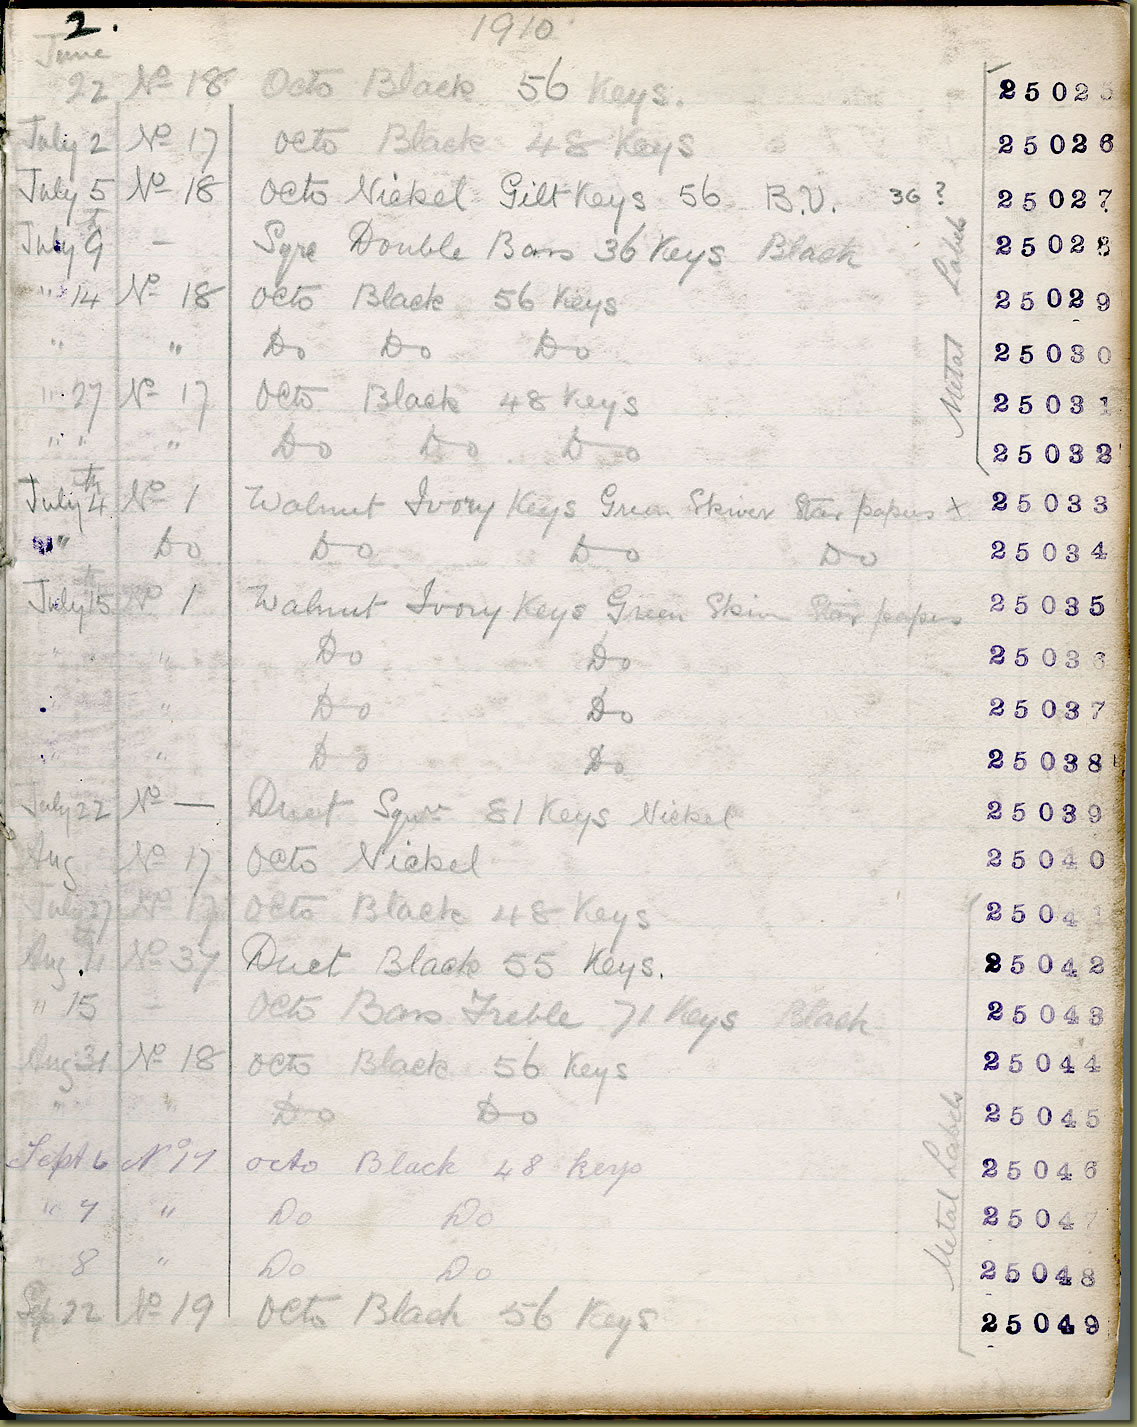 2.
1910
June
22 No 18 Octo Black 56 Keys. 25025
July 2 No 17 Octo Black 48 Keys 25026
July 5 No 18 Octo Nickel Gilt Keys 56 B.V. 36 ? 25027
July 9 – Sqre Double Bass 36 Keys Black 25028
" 14 No 18 Octo Black 56 Keys 25029
" " Do Do Do 25030
" 27 No 17 Octo Black 48 Keys 25031
" " " Do Do Do 25032
Metal Labels
July 4th No 1 Walnut Ivory Keys Green Skiver Star papers x 25033
" Do Do Do Do 25034
July 15th No 1 Walnut Ivory Keys Green Skiv Star papers 25035
" " Do Do 25036
" Do Do 25037
" " Do Do 25038
July 22 No — Duet Sqre 81 Keys Nickel 25039
Aug No 17 Octo Nickel 25040
July 27 No 17 Octo Black 48 Keys 25041
Aug 11 No 37 Duet Black 55 Keys. 25042
" 15 – Octo Bass Treble 71 Keys Black 25043
Aug 31 No 18 Octo Black 56 Keys 25044
" " Do Do 25045
Sept 6 No 17 Octo Black 48 keys 25046
" 7 " Do Do 25047
8 " Do Do 25048
Sep 22 No 19 Octo Black 56 Keys 25049
Metal Labels